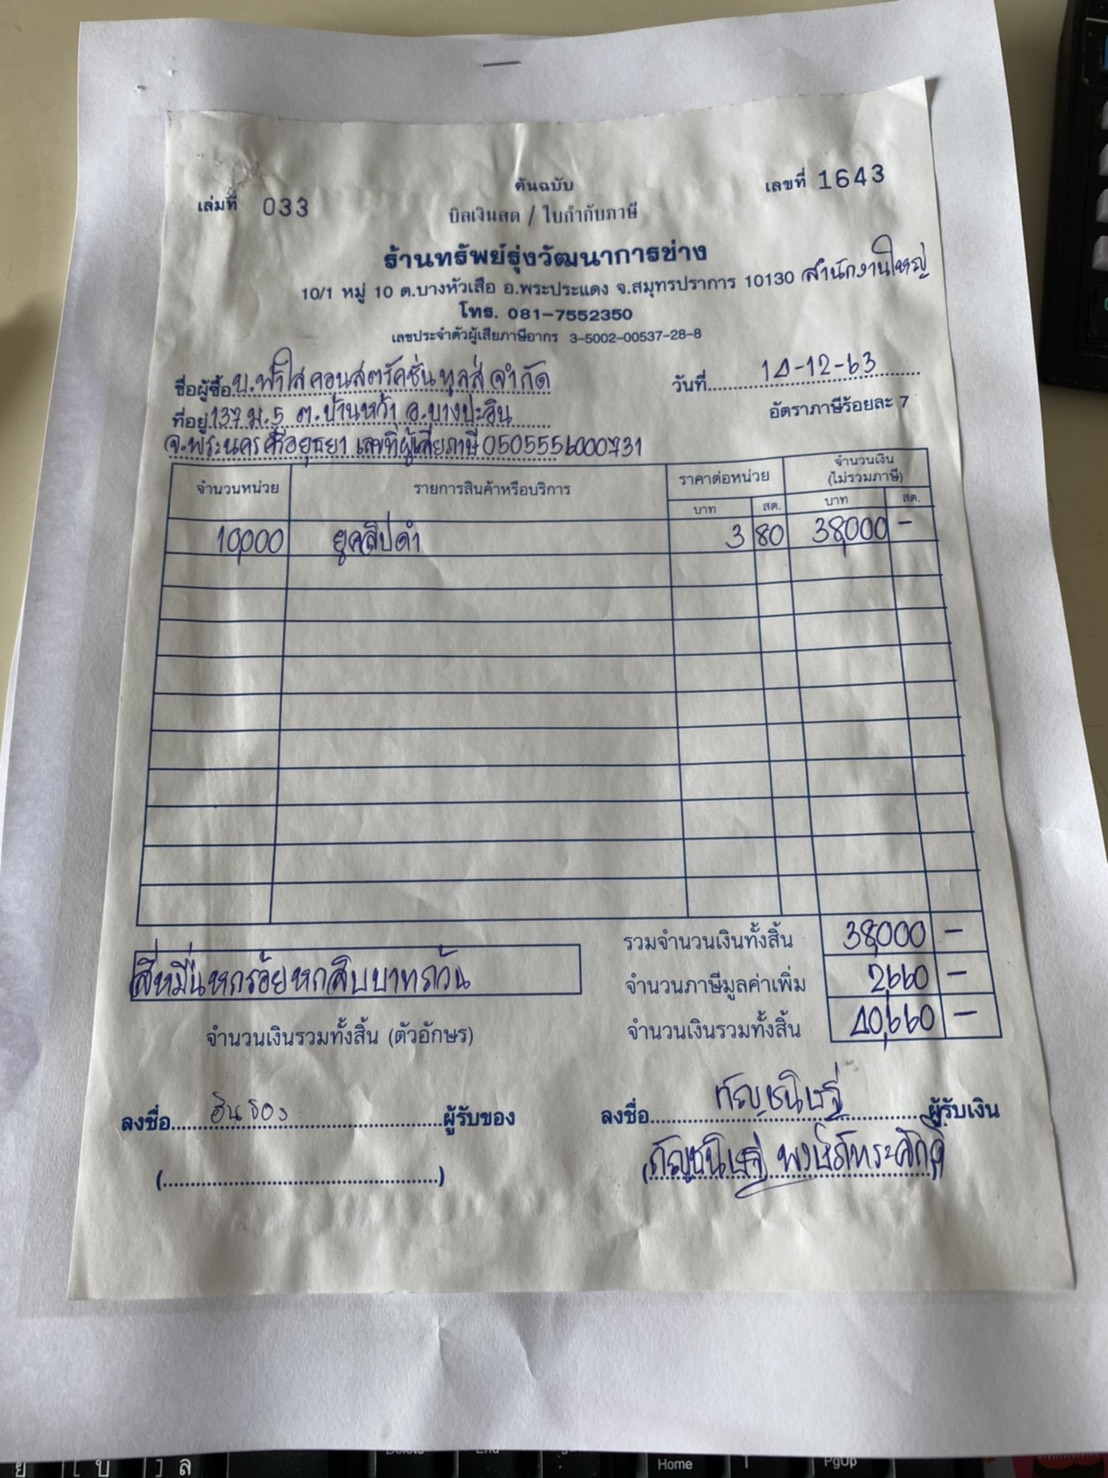 ต้นฉบับ
เล่มที่ 033
เลขที่ 1643
บิลเงินสด / ใบกำกับภาษี
ร้านทรัพย์รุ่งวัฒนาการช่าง
10/1 หมู่ 10 ต.บางหัวเสือ อ.พระประแดง จ.สมุทรปราการ 10130 สำนักงานใหญ่
โทร. 081-7552350
เลขประจำตัวผู้เสียภาษีอากร 3-5002-00537-28-8
ชื่อผู้ซื้อ บ.ฟ้าใส คอนสตรัคชั่น ทูลส์ จำกัด
วันที่ 14-12-63
ที่อยู่ 137 ม.5 ต.บ้านหว้า อ.บางปะอิน
อัตราภาษีร้อยละ 7
จ.พระนครศรีอยุธยา เลขที่ผู้เสียภาษี 0505556000731
จำนวนหน่วย รายการสินค้าหรือบริการ ราคาต่อหน่วย จำนวนเงิน (ไม่รวมภาษี)
บาท สต. บาท สต.
10,000 ยูคลิปดำ 3 80 38,000 -
รวมจำนวนเงินทั้งสิ้น 38,000 -
สี่หมื่นหกร้อยหกสิบบาทถ้วน
จำนวนภาษีมูลค่าเพิ่ม 2,660 -
จำนวนเงินรวมทั้งสิ้น (ตัวอักษร)
จำนวนเงินรวมทั้งสิ้น 40,660 -
ลงชื่อ ผู้รับของ
ลงชื่อ กัญชนิษฐ์ ผู้รับเงิน
(กัญชนิษฐ์
Home
PgUp